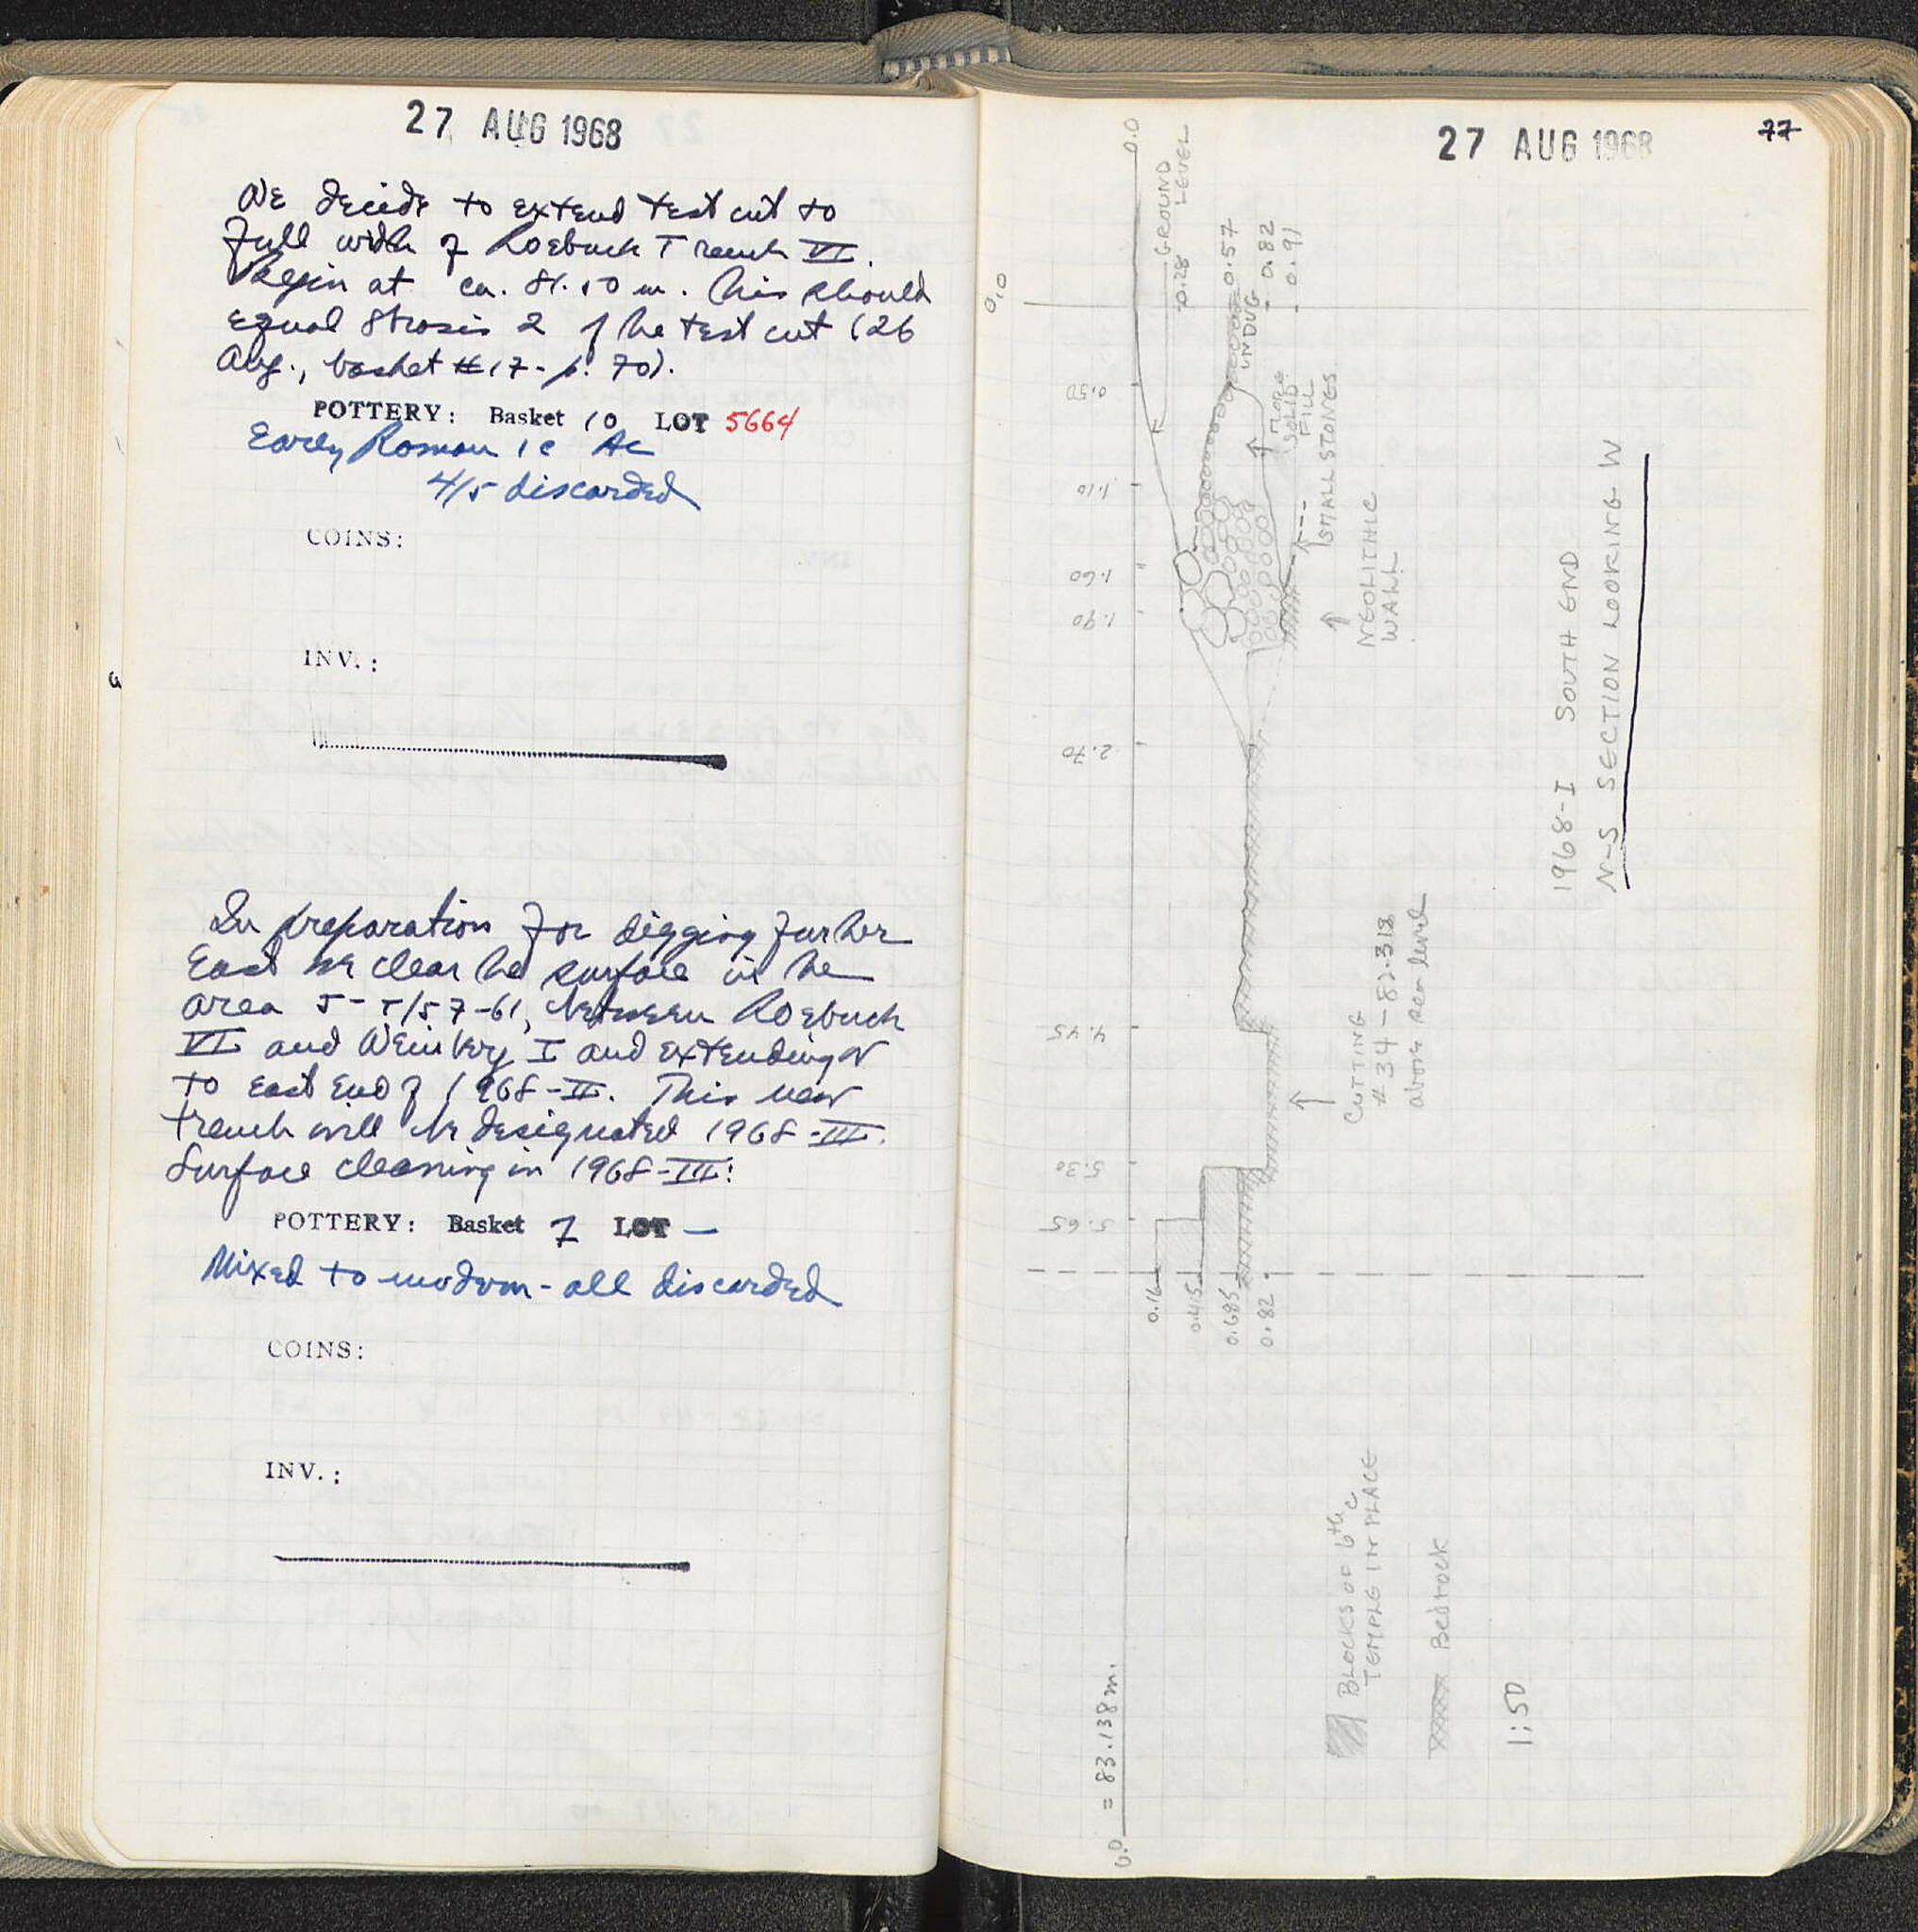 27 AUG 1968
We decide to extend test cut to
full width of Roebuck Trench VI.
Begin at ca. 81.50 m. This should
equal Strosis 2 of the test cut (26
Aug., basket #17 - p. 70).
POTTERY: Basket 10 LOT 5664
Early Roman 1c AC
4/5 discarded
COINS:
INV.:
In preparation for digging further
East we clear the surface in the
area J-T/57-61, between Roebuck
VI and Weinberg I and extending
to East End of 1968-II. This new
trench will be designated 1968-III.
Surface cleaning in 1968-III:
POTTERY: Basket 7 LOT —
Mixed to modern - all discarded
COINS:
INV.:
27 AUG 1968
77
0.0
0.0
GROUND
LEVEL
-0.28
0.57
0.82
0.91
UNDUG
MORE
SOLID
FILL
SMALL STONES
NEOLITHIC
WALL
0.50
1.10
1.60
1.90
2.70
4.45
5.30
5.65
0.16
0.415
0.685
0.82
CUTTING
#34 - 82.318
above sea level
1968-I SOUTH END
N-S SECTION LOOKING W
BLOCKS OF 6th c
TEMPLE IN PLACE
Bedrock
1:50
0.0 = 83.138 m.